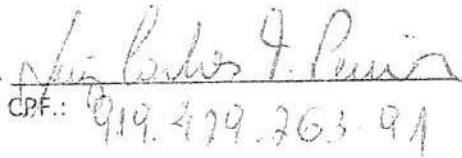 Luiz Carlos D. Pereira
CPF.: 919.429.263-91